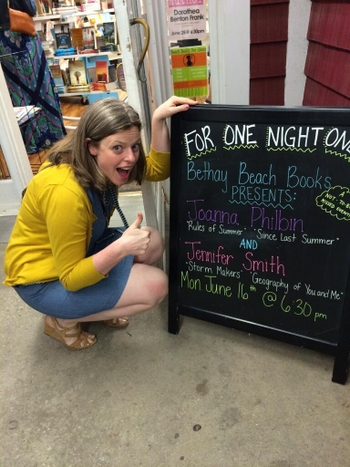 Dorothea
Benton Frank
FOR ONE NIGHT ON
Bethay Beach Books
PRESENTS:
NOT TO BE
MISSED EVENT!
Joanna Philbin
"Rules of Summer" "Since Last Summer"
AND
Jennifer Smith
"Storm Makers" "Geography of You and Me"
Mon June 16th @ 6:30 pm